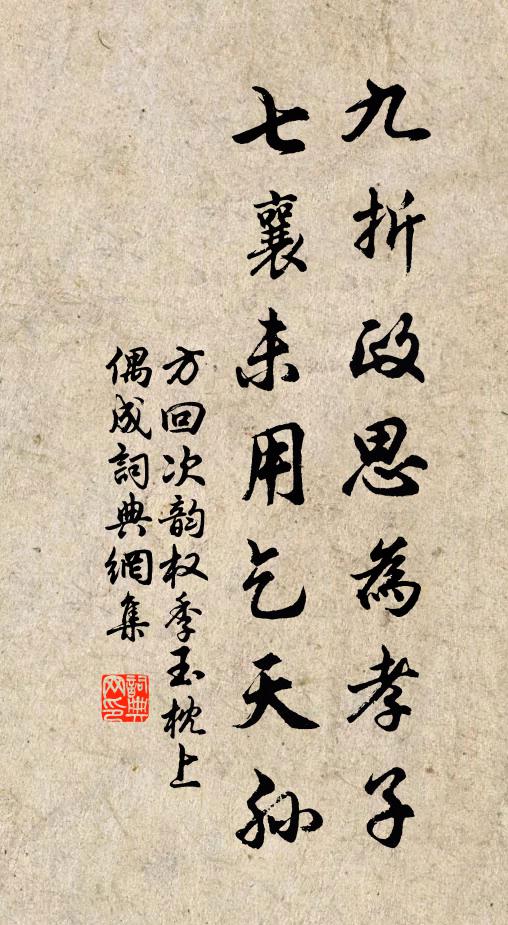 九折政思為孝子
七襄未用乞天孙
方回次韵权季玉枕上
偶成詞典網集
詞典
网印